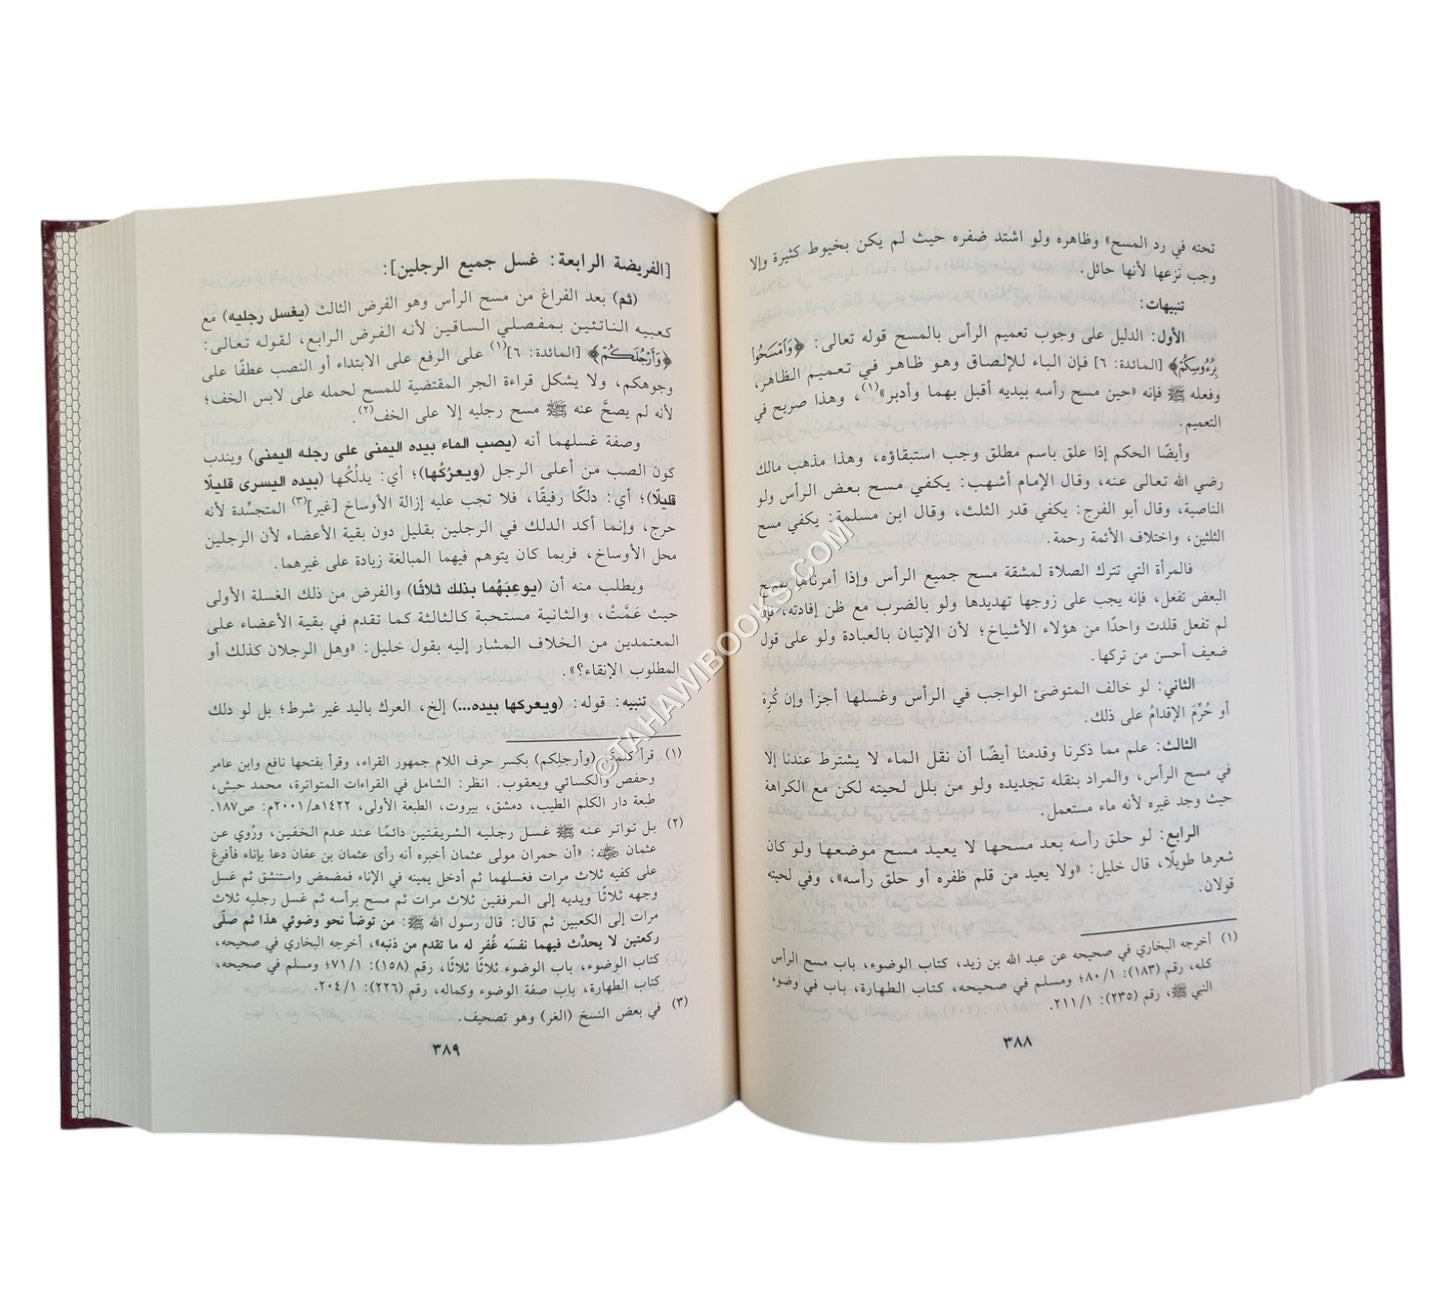 تحته في رد المسح» وظاهره ولو اشتد ضفره حيث لم يكن بخيوط كثيرة وإلا
وجب نزعها لأنها حائل.
تنبيهات:
الأول: الدليل على وجوب تعميم الرأس بالمسح قوله تعالى: ﴿وَامْسَحُوا
بِرُءُوسِكُمْ﴾ [المائدة: ٦] فإن الباء للإلصاق وهو ظاهر في تعميم الظاهر،
وفعله ﷺ فإنه «حين مسح رأسه بيديه أقبل بهما وأدبر»(١)، وهذا صريح في
التعميم.
وأيضًا الحكم إذا علق باسم مطلق وجب استيفاؤه، وهذا مذهب مالك
رضي الله تعالى عنه، وقال الإمام أشهب: يكفي مسح بعض الرأس ولو
الناصية، وقال أبو الفرج: يكفي قدر الثلث، وقال ابن مسلمة: يكفي مسح
الثلثين، واختلاف الأئمة رحمة.
فالمرأة التي تترك الصلاة لمشقة مسح جميع الرأس وإذا أمرناها بمسح
البعض تفعل، فإنه يجب على زوجها تهديدها ولو بالضرب مع ظن إفادته، فإن
لم تفعل قلدت واحدًا من هؤلاء الأشياخ؛ لأن الإتيان بالعبادة ولو على قول
ضعيف أحسن من تركها.
الثاني: لو خالف المتوضئ الواجب في الرأس وغسلها أجزأ وإن كُرهَ
أو حُرِّمَ الإقدامُ على ذلك.
الثالث: علم مما ذكرنا وقدمنا أيضًا أن نقل الماء لا يشترط عندنا إلا
في مسح الرأس، والمراد بنقله تجديده ولو من بلل لحيته لكن مع الكراهة
حيث وجد غيره لأنه ماء مستعمل.
الرابع: لو حلق رأسه بعد مسحها لا يعيد مسح موضعها ولو كان
شعرها طويلًا، قال خليل: «ولا يعيد من قلم ظفره أو حلق رأسه»، وفي لحيته
قولان.
(١) أخرجه البخاري في صحيحه عن عبد الله بن زيد، كتاب الوضوء، باب مسح الرأس
كله، رقم (١٨٣): ٨٠/١؛ ومسلم في صحيحه، كتاب الطهارة، باب في وضوء
النبي ﷺ، رقم (٢٣٥): ٢١١/١.
٣٨٨
[الفريضة الرابعة: غسل جميع الرجلين]:
(ثم) بعد الفراغ من مسح الرأس وهو الفرض الثالث (يغسل رجليه) مع
كعبيه الناتئين بمفصلي الساقين لأنه الفرض الرابع، لقوله تعالى:
﴿وَأَرْجُلَكُمْ﴾ [المائدة: ٦](١) على الرفع على الابتداء أو النصب عطفًا على
وجوهكم، ولا يشكل قراءة الجر المقتضية للمسح لحمله على لابس الخف؛
لأنه لم يصحَّ عنه ﷺ مسح رجليه إلا على الخف(٢).
وصفة غسلهما أنه (يصب الماء بيده اليمنى على رجله اليمنى) ويندب
كون الصب من أعلى الرجل (ويعرُكُها)؛ أي: يدلُكُها (بيده اليسرى قليلًا
قليلًا)؛ أي: دلكًا رفيقًا، فلا تجب عليه إزالة الأوساخ [غير](٣) المتجسِّدة لأنه
حرج، وإنما أكد الدلك في الرجلين بقليل دون بقية الأعضاء لأن الرجلين
محل الأوساخ، فربما كان يتوهم فيهما المبالغة زيادة على غيرهما.
ويطلب منه أن (يوعِبَهُما بذلك ثلاثًا) والفرض من ذلك الغسلة الأولى
حيث عَمَّتْ، والثانية مستحبة كالثالثة كما تقدم في بقية الأعضاء على
المعتمدين من الخلاف المشار إليه بقول خليل: «وهل الرجلان كذلك أو
المطلوب الإنقاء؟».
تنبيه: قوله: (ويعركها بيده...) إلخ، العرك باليد غير شرط؛ بل لو دلك
(١) قرأ كلمتي (وأرجلكم) بكسر حرف اللام جمهور القراء، وقرأ بفتحها نافع وابن عامر
وحفص والكسائي ويعقوب. انظر: الشامل في القراءات المتواترة، محمد حبش،
طبعة دار الكلم الطيب، دمشق، بيروت، الطبعة الأولى، ١٤٢٢هـ/٢٠٠١م: ص١٨٧.
(٢) بل تواتر عنه ﷺ غسل رجليه الشريفتين دائمًا عند عدم الخفين، ورُوي عن
عثمان ﷺ: «أن حمران مولى عثمان أخبره أنه رأى عثمان بن عفان دعا بإناء فأفرغ
على كفيه ثلاث مرات فغسلهما ثم أدخل يمينه في الإناء فمضمض واستنشق ثم غسل
وجهه ثلاثًا ويديه إلى المرفقين ثلاث مرات ثم مسح برأسه ثم غسل رجليه ثلاث
مرات إلى الكعبين ثم قال: قال رسول الله ﷺ: من توضأ نحو وضوئي هذا ثم صلّى
ركعتين لا يحدِّث فيهما نفسَه غُفر له ما تقدم من ذنبه»، أخرجه البخاري في صحيحه،
كتاب الوضوء، باب الوضوء ثلاثًا ثلاثًا، رقم (١٥٨): ٧١/١؛ ومسلم في صحيحه،
كتاب الطهارة، باب صفة الوضوء وكماله، رقم (٢٢٦): ٢٠٤/١.
(٣) في بعض النسخ (الغر) وهو تصحيف.
٣٨٩
©TAHAWIBOOKS.COM